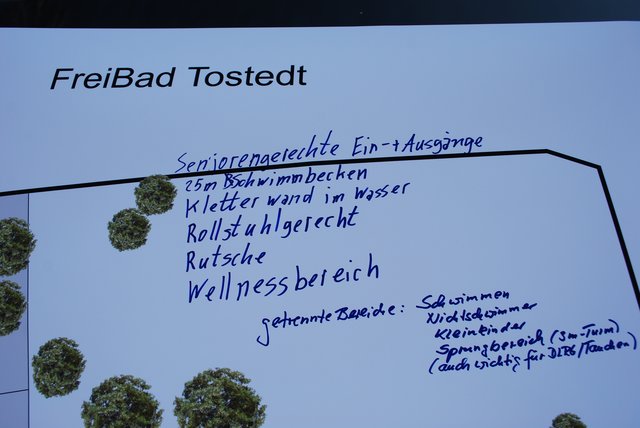 FreiBad Tostedt
Seniorengerechte Ein- + Ausgänge
25m Schwimmbecken
Kletterwand im Wasser
Rollstuhlgerecht
Rutsche
Wellnessbereich
getrennte Bereiche: Schwimmen
Nichtschwimmer
Kleinkinder
Sprungbereich (3m-Turm)
(auch wichtig für DLRG/Tauchen)